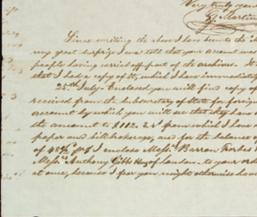 Very truly yours
J Martin
Since writing the above I have been to the
my great surprise I was told that your account was
people having carried off part of the archives. It
that I had a copy of it, which I have immediately
25th July. Enclosed you will find copy of
received from the Subsecretary of State for foreign
account by which you will see that they have
the amount to $112.24 from which I have
paper and bill brokerage, and for the balance
of 48 I enclose Messrs Barron Forbes
Messrs Anthony Gibbs of London, to your order
at once, because I fear you might otherwise have